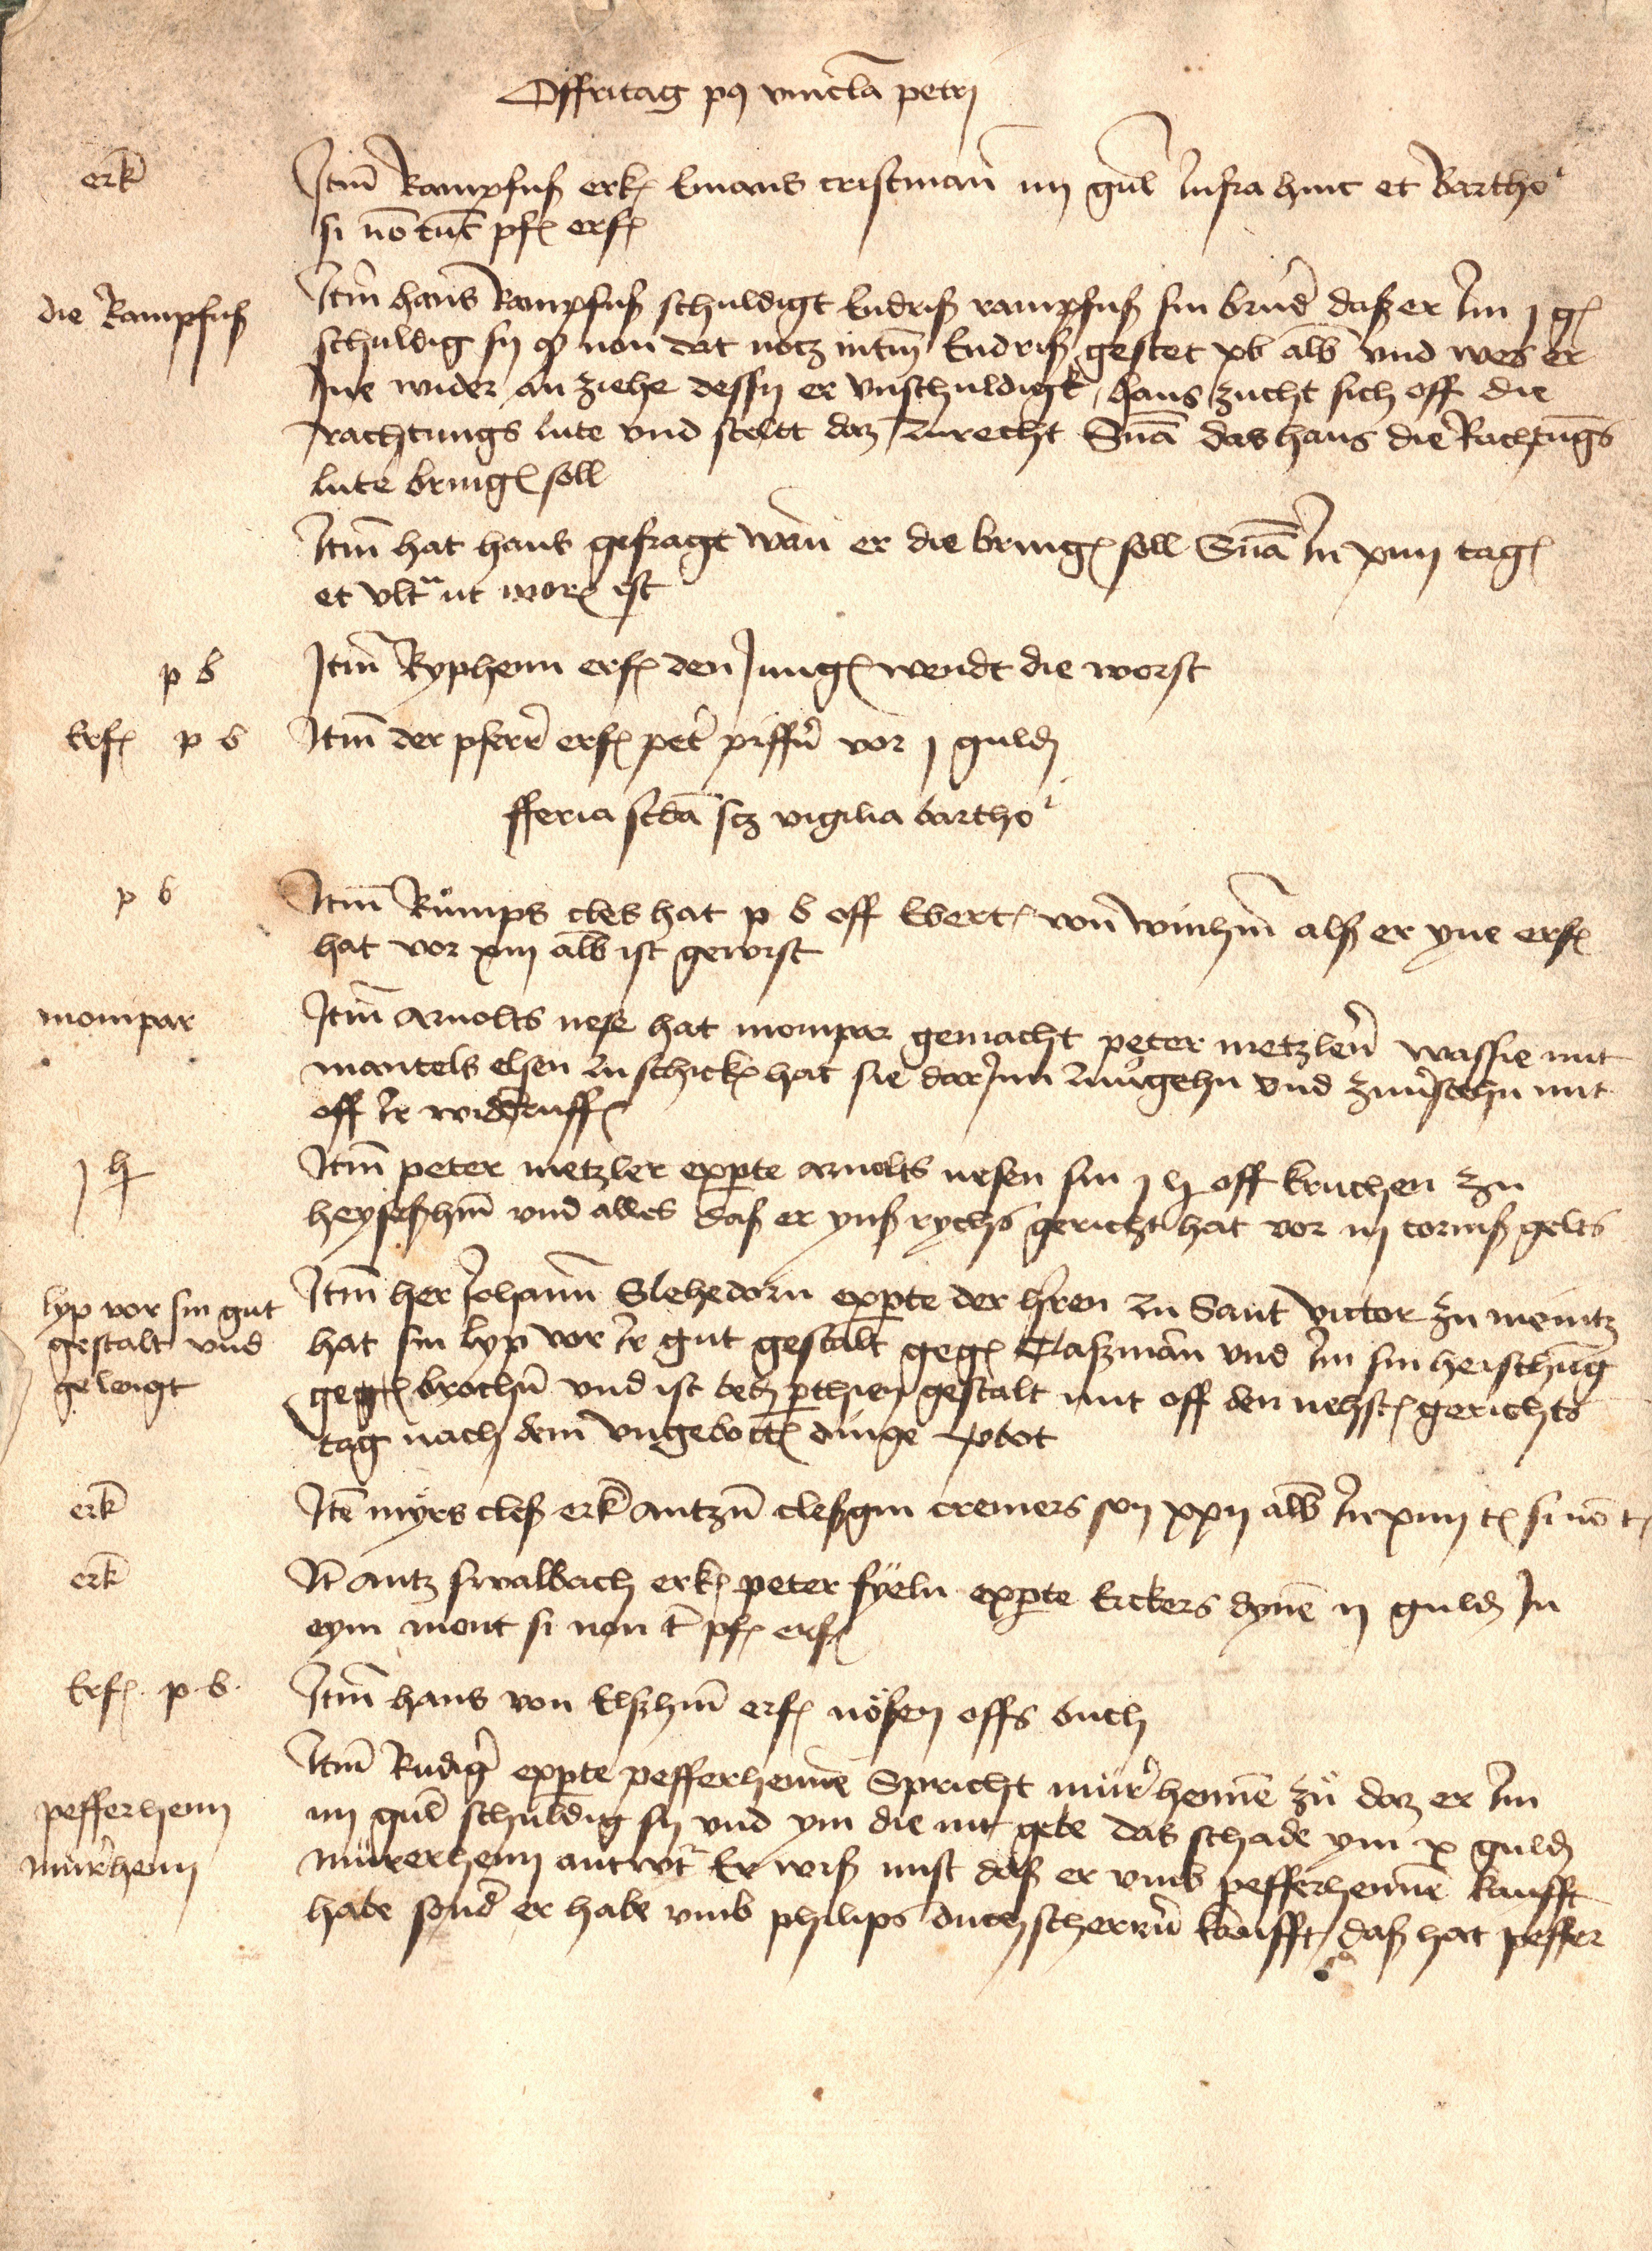 Offritag p9 vincla petri
erk
Itm Rampfuß erk Emans cristman iiij gul infra hinc et Bartho
si no tut pf erf
die Rampfuß
Itm hans Rampfuß schuldigt Endriß rampfuß sin brud daß er Im j g
schuldig sy q non dat nocz intm Endriß gestet xv alb vnd wes er
Ine wider an ziehe dessy er vnschuldigk hans zucht sich off die
rachtungs lute vnd stellt daz zurecht Sna das hans die Rachtungs
lute bring soll
Itm hat hans gefragt wan er die bring soll Sna In xiiij tag
et vlt ut mor est
p b
Itm Ryphenn erf den Jung wendt die worst
Erf p b
Itm der pferr erf pet piffr vor j guld
fferia scda scz vigilia bartho
p b
Itm Rumps cles hat p b off Ebert von winhm alß er yne erf
hat vor xiij alb ist geworst
mompar
Itm Arnolts nese hat mompar gemacht peter metzlern was sie mit
mantels elsen zu schick hat sie darJnn zuugehn vnd zuuerstehn mit
off Ir widderruff
j h
Itm peter metzler exparte arnolts nesen sin j h off kruchen zu
heyseßhm vnd alles daß er ynß rychs gericht hat vor iij torniß gelts
lyp vor sin gut
gestalt vnd
geleigt
Itm her Johann Slehedorn exparte der hren zu Sant victor zu meintz
hat sin lyp vor Ir gut gestalt geg Claßman vnd Im sin heischung
geg broch vnd ist beth parthien gestalt mit off den nehst gerichts
tag nach dem vngebott dinge
erk
Ite myers cleß erk antzu cleßgin cremers son xxij alb In xiiij t si no t
erk
It Antz swalbach erk peter fyeln exparte Eckers dyne ij guld In
eym mont si non t pf erf
Erf p b
Itm hans von Elßhm erf nösen offs buch
pefferhenn
murerhenn
Itm Rudig exparte pefferhenne Spricht murerhenne zu daz er Im
iiij gul schuldig sy vnd ym die nit gebe das schade ym x guld
murerhenn antwt Er wiß nust daß er vmb pefferhenne kaufft
habe sond er habe vmb philips duchscherern kaufft daß hat peffer